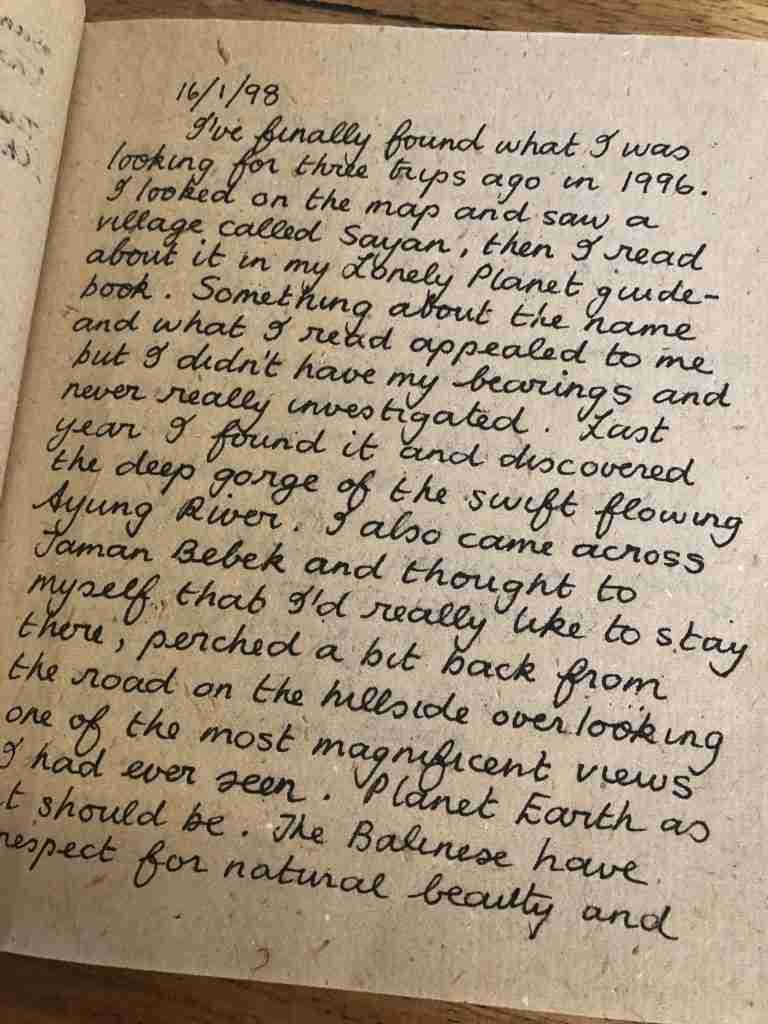 16/1/98
I've finally found what I was
looking for three trips ago in 1996.
I looked on the map and saw a
village called Sayan, then I read
about it in my Lonely Planet guide-
book. Something about the name
and what I read appealed to me
but I didn't have my bearings and
never really investigated. Last
year I found it and discovered
the deep gorge of the swift flowing
Ayung River. I also came across
Taman Bebek and thought to
myself, that I'd really like to stay
there, perched a bit back from
the road on the hillside overlooking
one of the most magnificent views
I had ever seen. Planet Earth as
t should be. The Balinese have
respect for natural beauty and